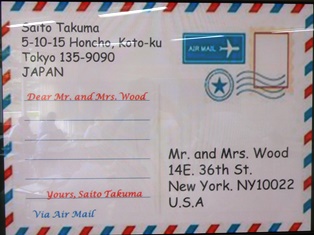 Saito Takuma
5-10-15 Honcho, Koto-ku
Tokyo 135-9090
JAPAN
AIR MAIL
Dear Mr. and Mrs. Wood
Yours, Saito Takuma
Via Air Mail
Mr. and Mrs. Wood
14E. 36th St.
New York. NY10022
U.S.A